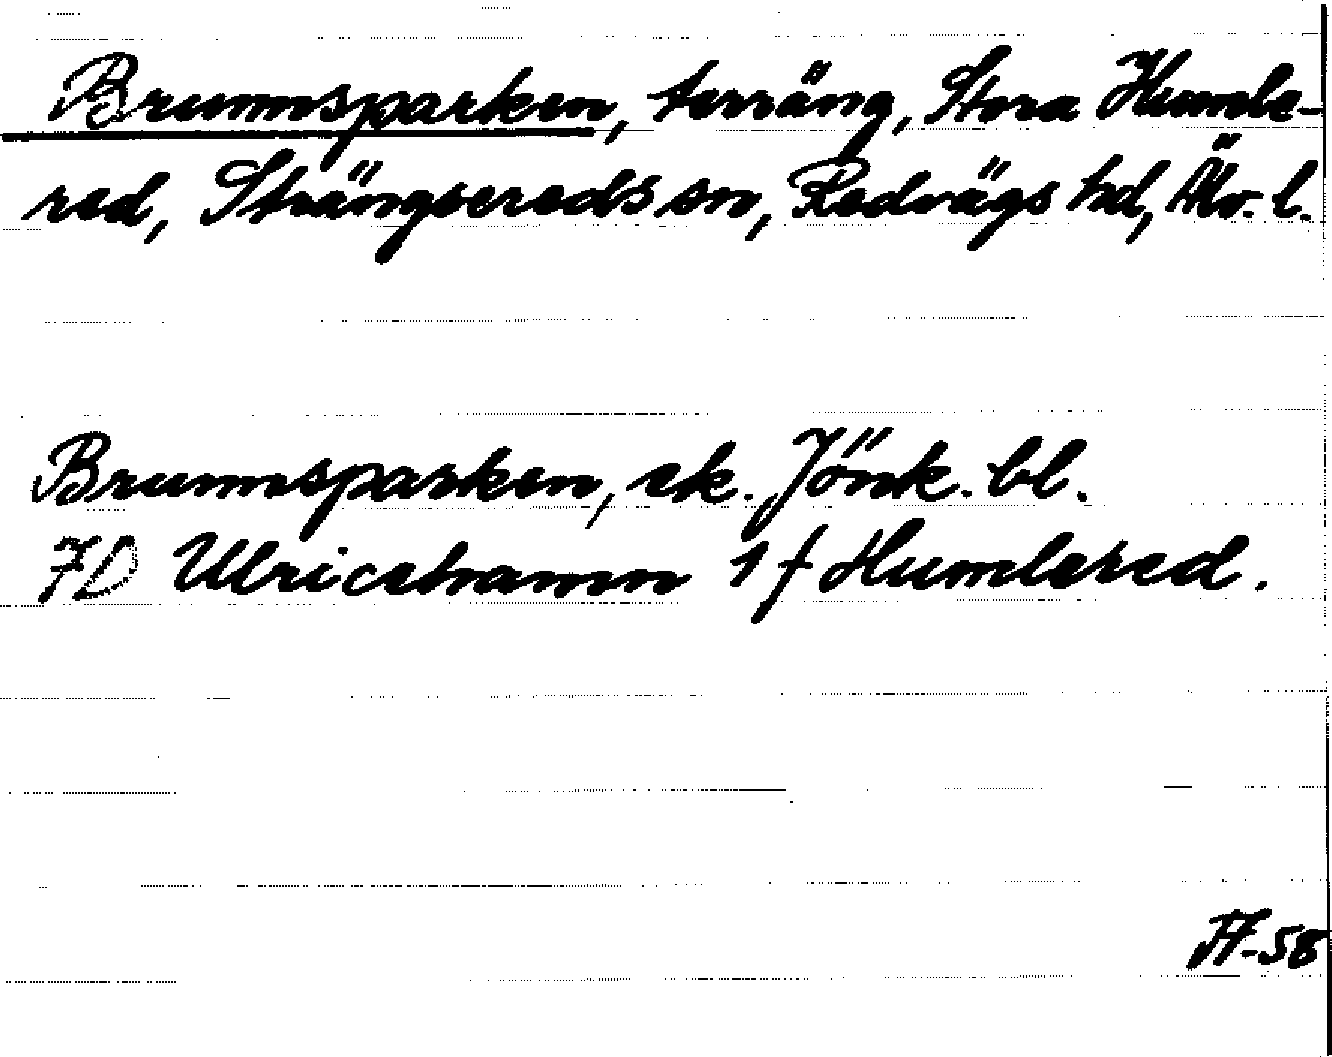 Brunnsparken, terräng, Stora Humle-
red, Strängsereds sn, Redvägs hd, Älv. l.
Brunnsparken, ek. Jönk. bl.
7D Ulricehamn 1 f Humlered.
-58